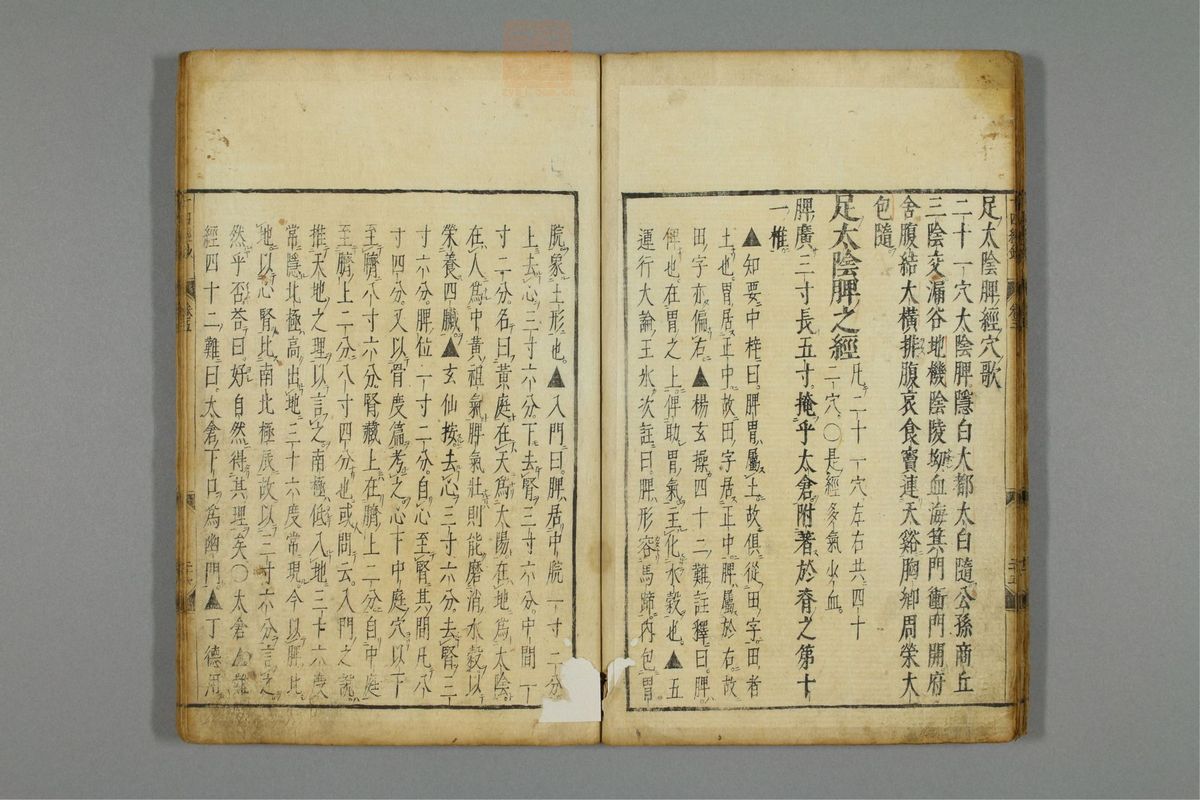 足太陰脾經穴歌
二十一穴太陰脾隱白大都太白隨公孫商丘
三陰交漏谷地機陰陵坳血海箕門衝門開府
舍腹結大橫排腹哀食竇連天谿胸鄉周榮大
包隨
足太陰脾之經 凡二十一穴左右共四十
二穴。〇是經多氣少血。
脾廣三寸長五寸。掩乎太倉附著於脊之第十
一椎
▲知要中梓曰。脾胃屬土故俱從田字田者
土也。胃居正中。故田字居正中。脾屬於右。故
田字亦偏右▲楊玄操四十二難註釋曰。脾
俾也。在胃之上俾助胃氣主化水穀也。▲五
運行大論王氷次註曰。脾形容馬蹄內包胃
脘象土形也。▲入門曰。脾居中脘一寸二分
上去心三寸六分。下去腎三寸六分。中間一
寸二分。名曰黃庭在天為太陽在地為太陰
在人為中黃祖氣脾氣壯則能磨消水穀以
榮養四臟▲玄仙按去心三寸六分。去腎三
寸六分。脾位一寸二分。自心至腎其間凡八
寸四分。又以骨度篇考之心下中庭穴以下
至臍八寸六分腎藏上在臍上二分自中庭
至臍上二分八寸四分也。或問云。入門之說
推天地之理以言之南極低入地三十六度
常隱北極高出地三十六度常現今以脾比
地以心腎比南北極辰故以三寸六分言之
然乎否荅曰。好自然得其理矣〇太倉▲難
經四十二難曰。太倉下口為幽門▲丁德用